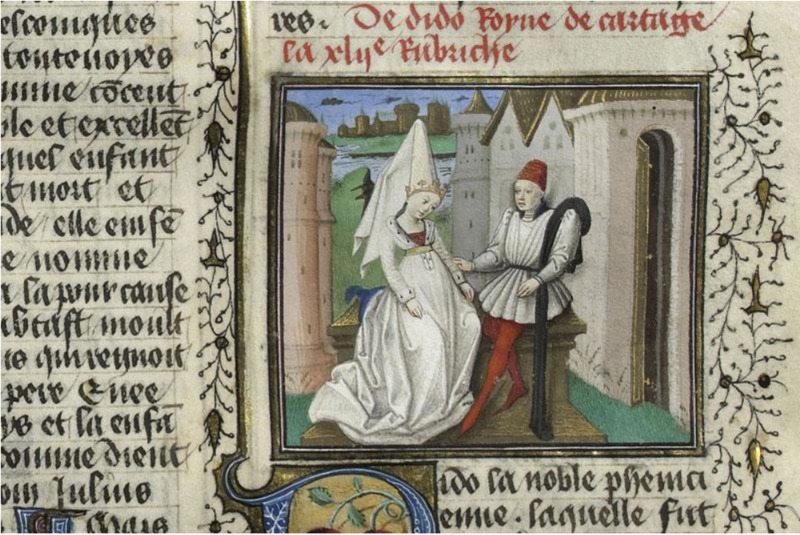 esconiques
tontenoyes
mme cōcent
ble et excellēt
quel enfant
t mort et
de elle emsē
e nomme
a la pour cause
moult
ts qui regnoit
pere Enee
ys et la enfā
omme dient
om Julius
Mars
res. De dido Royne de cartage
la xlije Rubriche
Dido la noble phenici
enne. laquelle fut